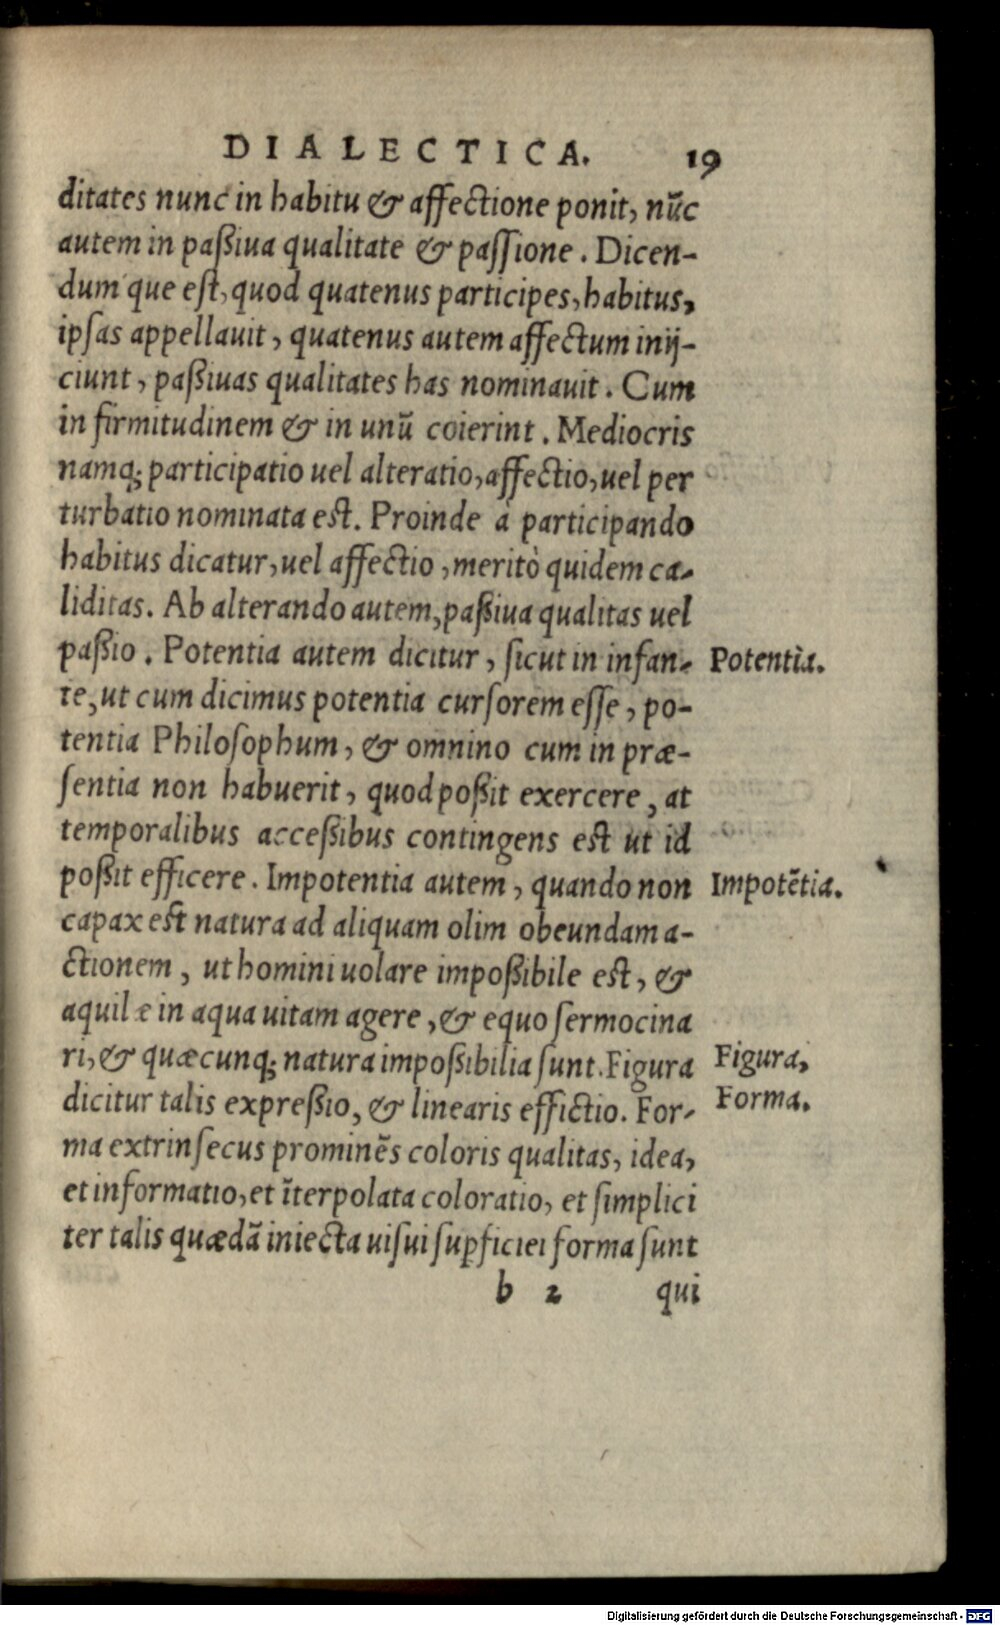 DIALECTICA. 19
ditates nunc in habitu & affectione ponit, nūc
autem in paßiua qualitate & paſſione. Dicen-
dum que eſt, quod quatenus participes, habitus,
ipſas appellauit, quatenus autem affectum inij-
ciunt, paßiuas qualitates has nominauit. Cum
in firmitudinem & in unū coierint. Mediocris
namq; participatio uel alteratio, affectio, uel per
turbatio nominata est. Proinde à participando
habitus dicatur, uel affectio, meritò quidem ca-
liditas. Ab alterando autem, paßiua qualitas uel
paßio. Potentia autem dicitur, ſicut in infan-
Potentia.
te, ut cum dicimus potentia curſorem eſſe, po-
tentia Philoſophum, & omnino cum in præ-
ſentia non habuerit, quod poßit exercere, at
temporalibus acceßibus contingens est ut id
poßit efficere. Impotentia autem, quando non
Impotētia.
capax est natura ad aliquam olim obeundam a-
ctionem, ut homini uolare impoßibile est, &
aquilæ in aqua uitam agere, & equo ſermocina
ri, & quæcunq; natura impoßibilia ſunt. Figura
Figura,
dicitur talis expreßio, & linearis effictio. For-
Forma.
ma extrinſecus prominēs coloris qualitas, idea,
et informatio, et īterpolata coloratio, et ſimplici
ter talis quædā iniecta uiſui suꝑficiei forma ſunt
b 2 qui
Digitalisierung gefördert durch die Deutsche Forschungsgemeinschaft - DFG